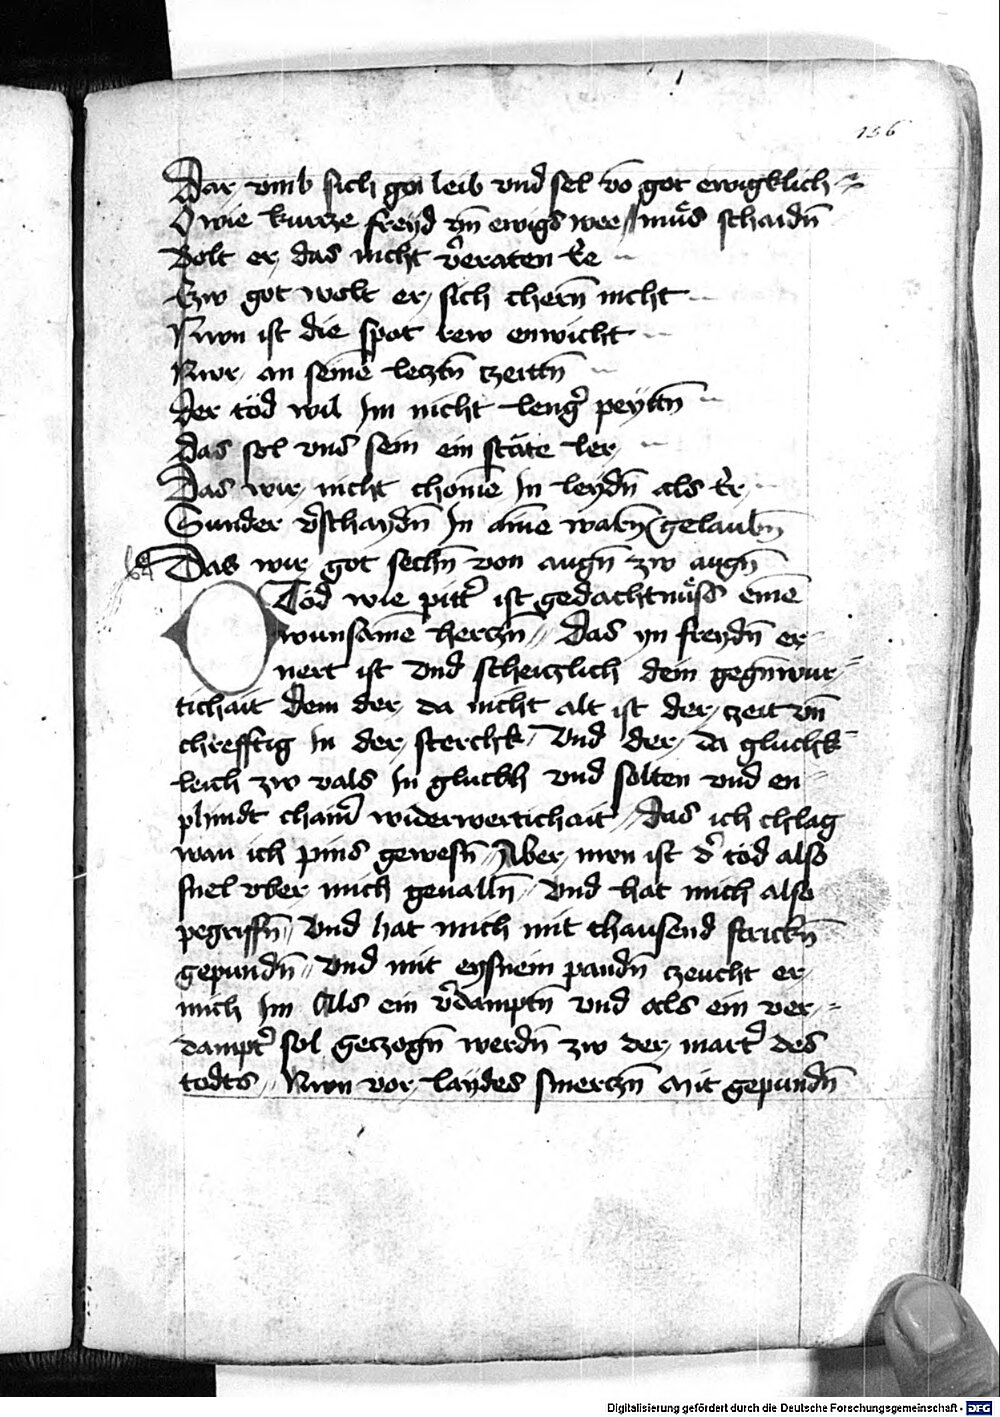 156
Dar vmb sich gai leib vnd sel vō got ewigklich
O wie kurcze freyd vn̄ ewigs wee muͤs schaidn̄
Wolt er das nicht v̓eraten Ee
Czw got wolt er sich chern̄ nicht
Nwn ist die spot rew enwicht
Nwr an seinē leczn̄ czeittn̄
Der töd wil Im nicht leng̓ peyttn̄
Das sol vns sein ein stäte ler
Das wir nicht chomē In leydn̄ als Er
Sunder v̓schaydn̄ In aīne warn̄ gelaubn̄
Das wir got sechn̄ von augn̄ zw augn̄
O Töd wie pitt̓ ist gedachtnuͤss eīnē
wunsamē herczn̄ Das yn freydn̄ er
nert ist Vnd scheuczlich dem gegn̄wur
tichait Dem der da nicht alt ist der czeit vn̄
chrefftig In der sterchk Vnd der da gluchk
leich zw vals In gluckh vnd solten vnd en
phindt chain̄ widerwertichait Das ich chlag
wan ich pins gewesn̄ Aber nwn ist d̓ töd also
snel vber mich geualln̄ Vnd hat mich also
pegriffn̄ Vnd hat mich mit thausend strickn̄
gepundn̄ Vnd mit eysnein pandn̄ czeucht er
mich Im Als ein v̓damptn̄ vnd als ein ver
dampt̓ sol geczogn̄ werdn̄ zw der mart̓ des
todts Nwn vor laydes smerczn̄ Mit gepundn̄
Digitalisierung gefördert durch die Deutsche Forschungsgemeinschaft - DFG